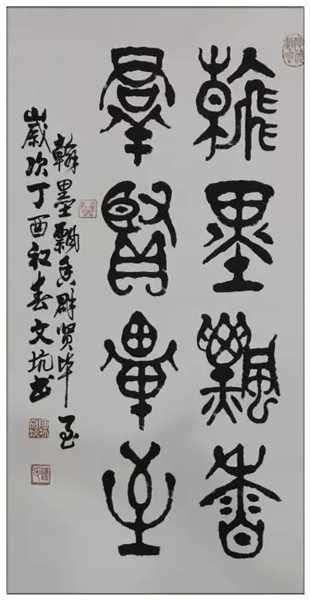 翰墨飘香
群贤毕至
翰墨飘香群贤毕至
岁次丁酉初春文坑书